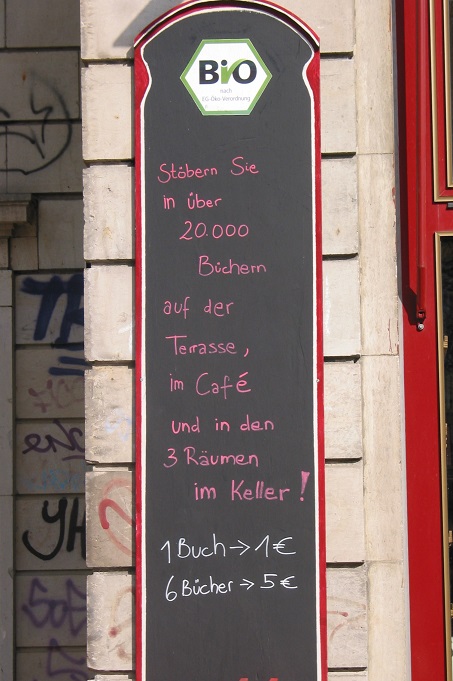 BiO
nach
EG-Öko-Verordnung
Stöbern Sie
in über
20.000
Büchern
auf der
Terrasse,
im Café
und in den
3 Räumen
im Keller!
1 Buch → 1 €
6 Bücher → 5 €